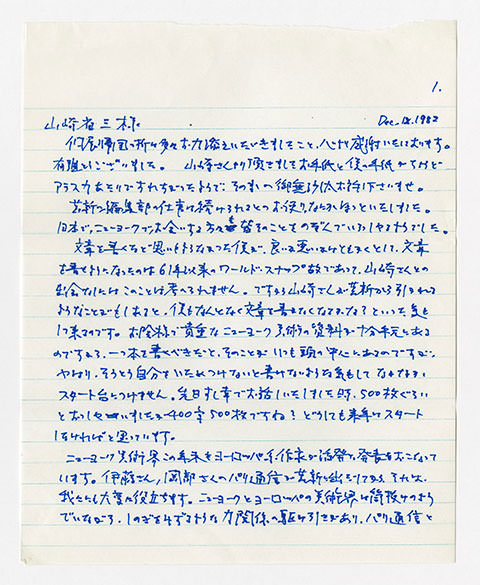 1.
山崎省三様 Dec. 18. 1982
帰国の折は多々お力添えいただきましたこと、心から感謝いたしております。
有難うございました。 山崎さんより頂きましたお手紙と僕の手紙がちょうど
アラスカあたりですれちがったようで、その
芸新の編集部の仕事は続けられるとのお便り、なにかほっといたしました。
日本でニューヨークでお会いする方々も皆そのことをのぞんでいらしたようでした。
文章を書くなど思いもよらなかった僕が、良いも悪いもはともかくとして、文章
を書くようになったのは61年以来のワールド・スナップ故であって、山崎さんとの
出会なしにはこのことは考えられません。ですから山崎さんが芸新から引かれる
ようなことでもしあると、僕もなんとなく文章を書かなくなるかな?といった気も
して来るのです。お陰様で貴重なニューヨーク美術の資料が十分手元にある
のですから、一つ本を書くべきだと、そのことがいつも頭の中にあるのですが、
やはり、そうとう自分をいためつけないと書けないような気もして なかなか
スタート台につけません。先日すし屋でお話しいたしました時、500枚ぐらい
とおっしゃいましたが400字500枚ですね? どうしても来年はスタート
しなければと思っています。
ニューヨーク美術界この年末をヨーロッパ系作家が活発な発表をおこなって
います。伊藤さん、岡部さんのパリ通信が芸新に出ており、それは、
我々にも大変に役立ちます。ニューヨークとヨーロッパの美術界は筒抜けのよう
でいながら、しのぎをけずるような力関係の駆け引きがあり、パリ通信と